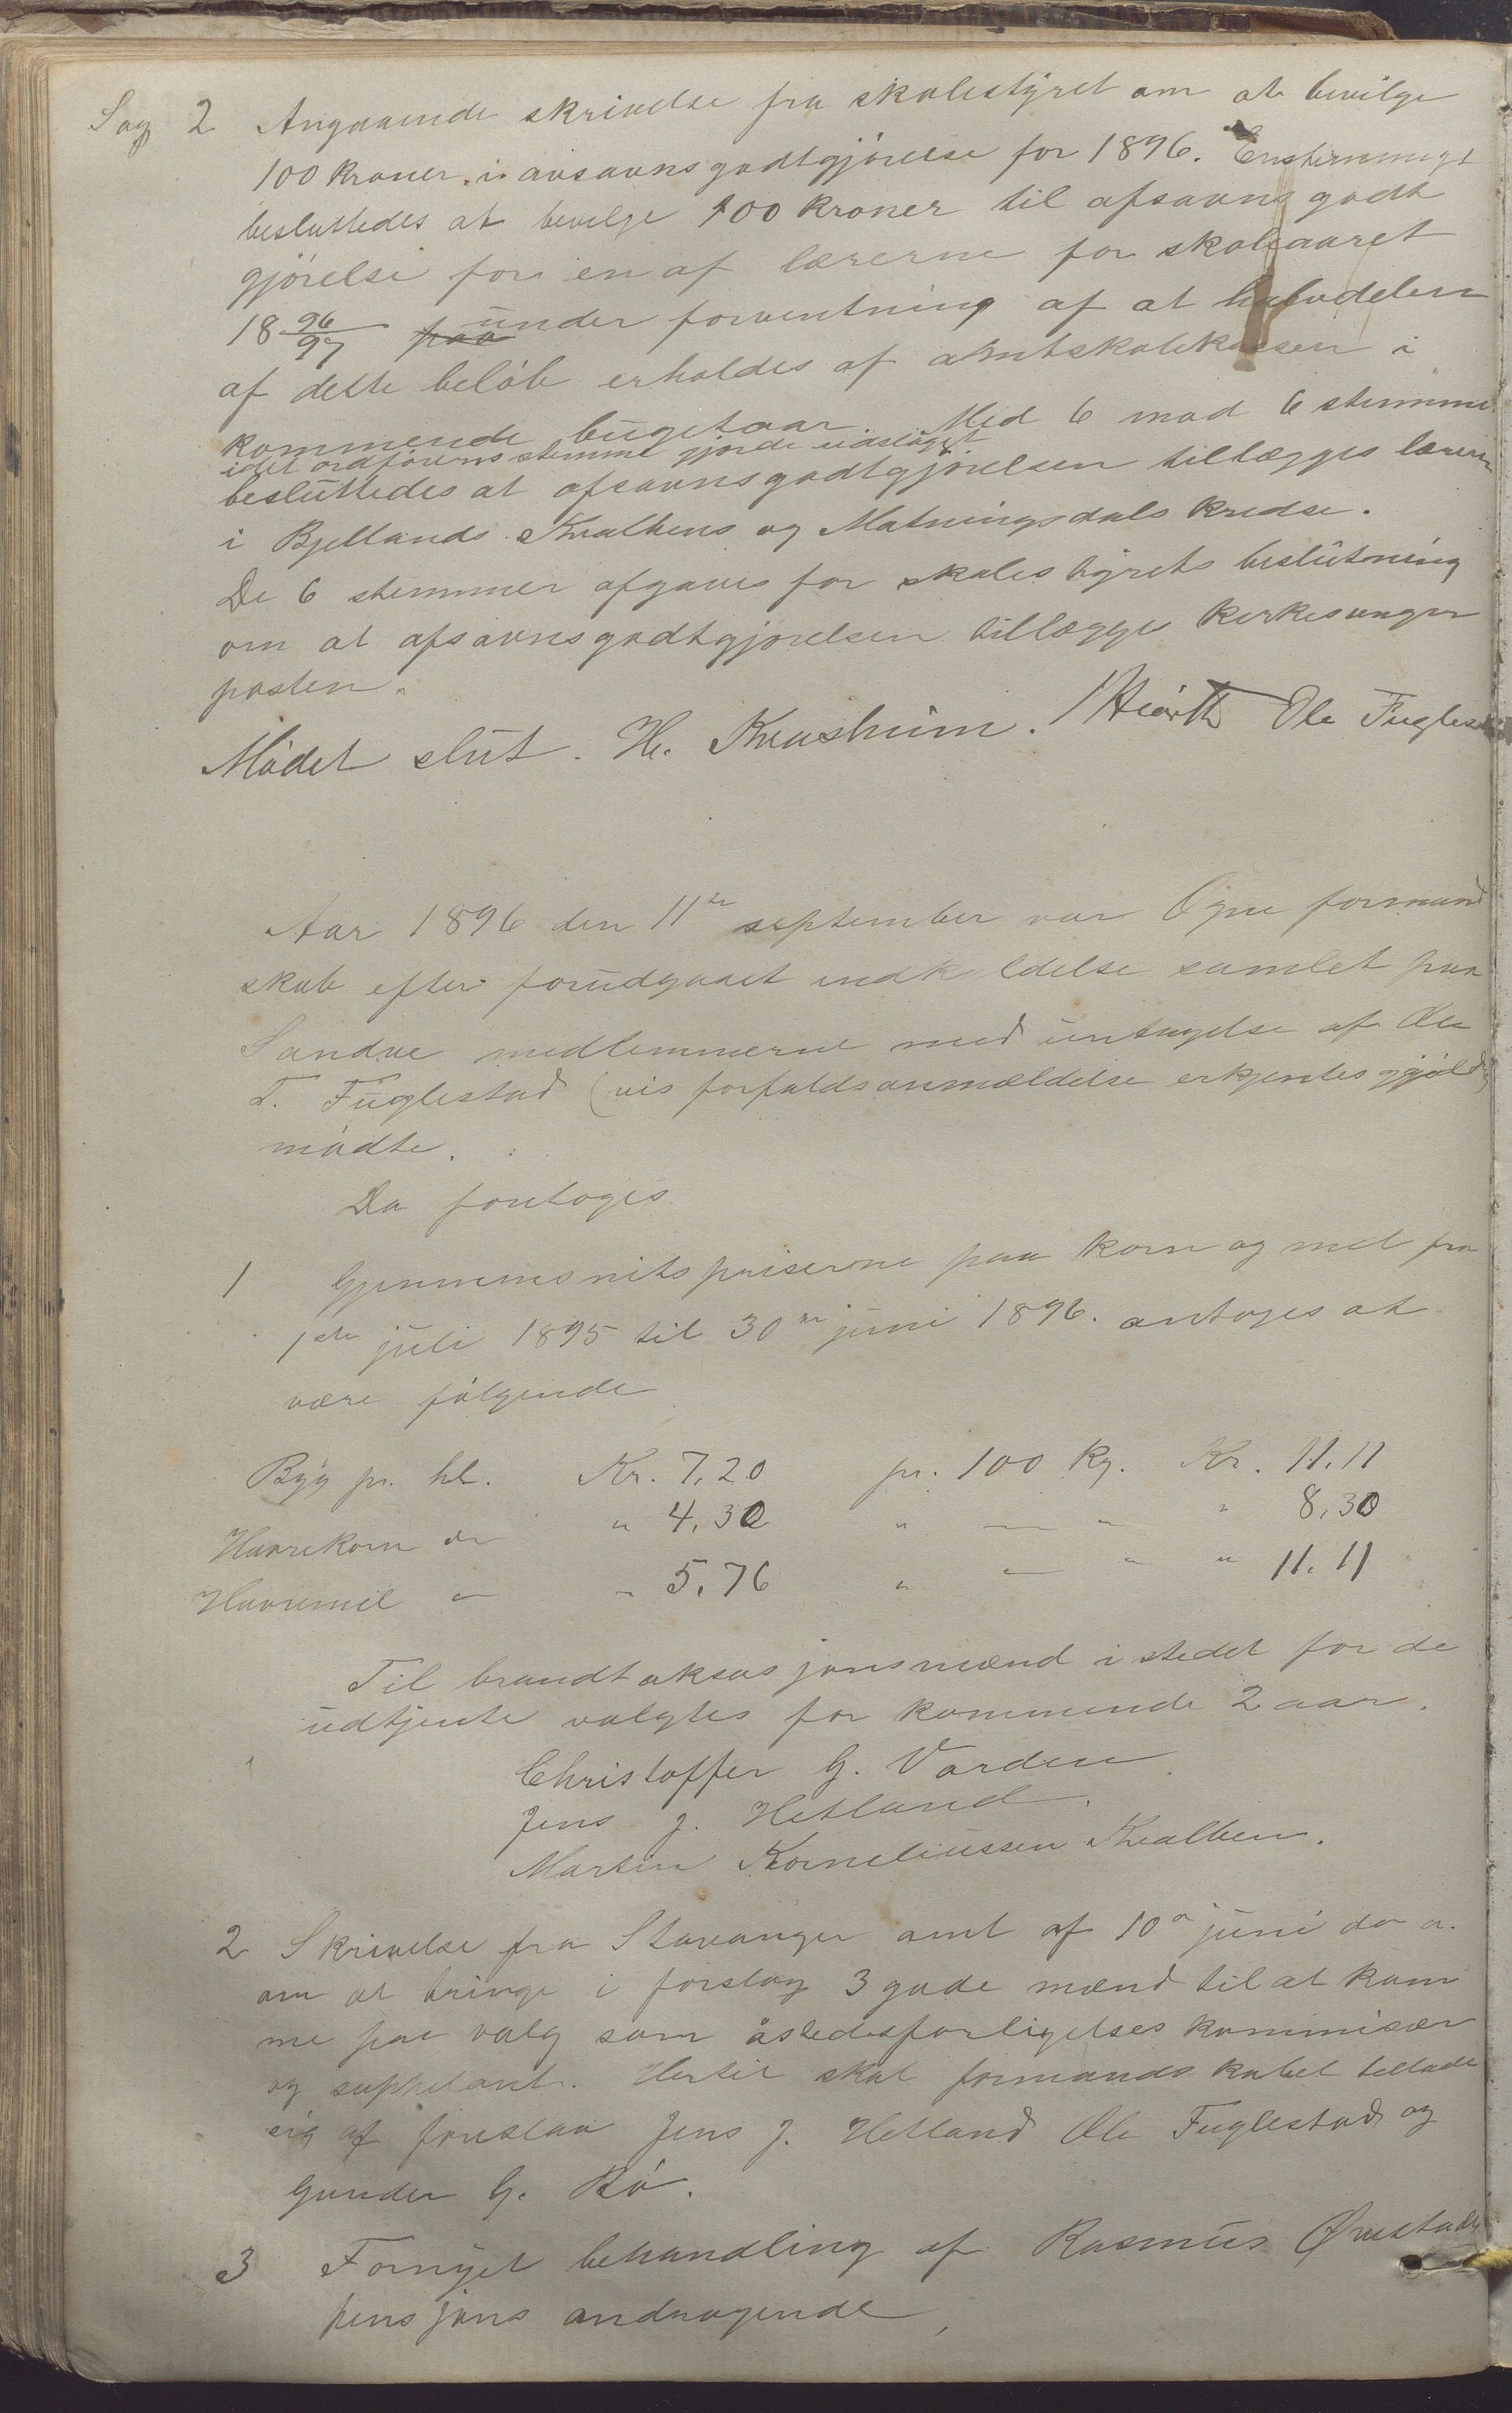 Sag 2 Angaaende skrivelse fra skolestyret om at bevilge
100 Kroner i avsavnsgodtgjörelse for 1896. Enstemmigt
besluttedes at bevilge 100 Kroner til afsavnsgodt
gjörelse for en af lærerne for skoleaaret
18 96/97 paa under forventning af at halvdelen
af dette belöb erholdes af amtskolekassen i
kommende bugetaar. Med 6 mod 6 stemmer
idet ordförerens stemme gjorde udslaget
besluttedes at afsavnsgodtgjörelsen tillægges læreren
i Bjellands Kvalbens og Matningsdals Kredse.
De 6 stemmer afgaves for skolestyrets beslutning
om at afsavnsgodtgjörelsen tillægges Kirkesanger
posten.
Mödet slut. H. Kvashiim. Ole Fuglestad
Aar 1896 den 11te september var Ogne formand
skab efter forudgaaet indkaldelse samlet paa
Sandve medlemmerne med untagelse af Ole
T. Fuglestad (vis forfaldsanmældelse erkjentes gjyldig)
mödte.
Da foretoges
1 Gjennemsnitspriserne paa korn og mel fra
1ste juli 1895 til 30te juni 1896. antoges at
være fölgende
Byg pr. hl. Kr. 7,20 pr. 100 Kg. Kr. 11.11
Havrekorn do " 4,30 " — " " 8,30
Havremel " " 5,76 " — " " 11.11
Til brandtaksasjonsmænd i stedet for de
udtjente valgtes for kommende 2 aar.
Christoffer G. Varden
Jens J. Hetland.
Martin Korneliussen Kvalben.
2 Skrivelse fra Stavanger amt af 10de juni d. a.
om at bringe i forslag 3 gode mænd til at kom
me paa valg som åstedsforligelses kommisær
og supleant. Hertil skal formandskabet tillade
sig at foreslaa Jens J. Hetland Ole Fuglestad og
Gunder G. Bö.
3 Fornyet behandling af Rasmus Ørestads
pensjons andragende,